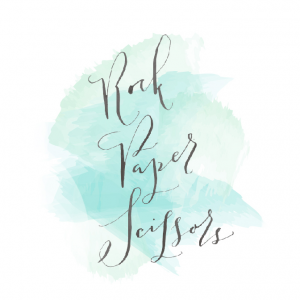 Rock
Paper
Scissors